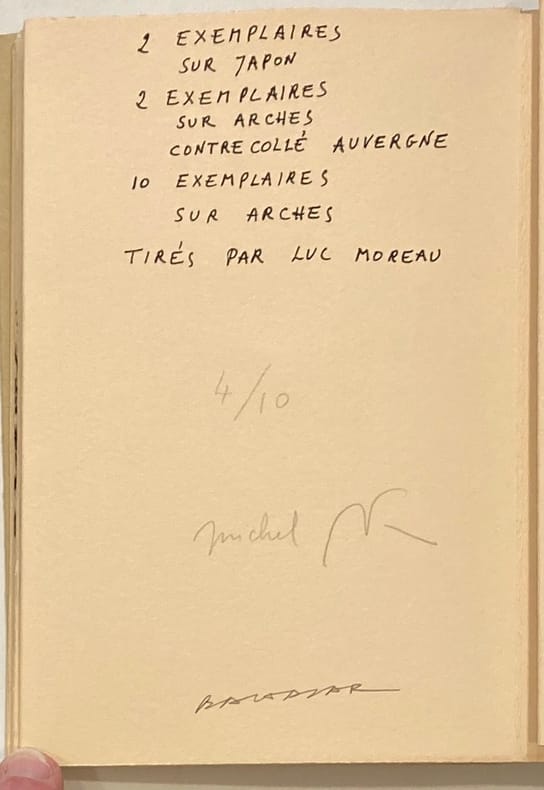 2 EXEMPLAIRES
SUR JAPON
2 EXEMPLAIRES
SUR ARCHES
CONTRECOLLÉ AUVERGNE
10 EXEMPLAIRES
SUR ARCHES
TIRÉS PAR LUC MOREAU
4/10
michel